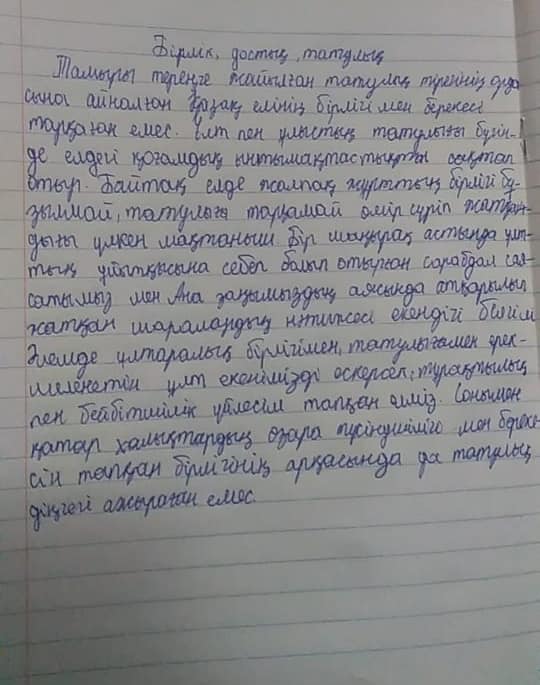 Бірлік, достық, татулық
Тамыры тереңге жайылған татулық тіреннің орда
сына айналған Қазақ елінің бірлігі мен берекесі
тарқаған емес. Ұлт пен ұлыстың татулығы бүгін-
де елдегі қоғамдық ынтымақтастықты сақтап
отыр. Байтақ елде жалпақ жұрттың бірлігі бұ-
зылмай, татулығы тарқамай өмір сүріп жатқан-
дығы үлкен мақтаныш Бір шаңырақ астында ұлт-
тың ұйытқысына себеп болып отырған сарабдал сая-
сатымыз мен Ата заңымыздың аясында атқарылып
жатқан шаралардың нәтижесі екендігі белгілі
Әлемде ұлтаралық бірлігімен, татулығымен ерек-
шеленетін ұлт екенімізді ескерсек, тұрақтылық
пен бейбітшілік үйлесім тапқан елміз. Сонымен
қатар халықтардың өзара түсіншілігі мен береке-
сін тапқан бірлігінің арқасында да татулық
діңгегі ажыраған емес.